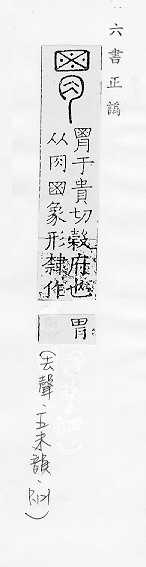 六書正譌
胃于貴切榖府也
从肉𡇒象形隸作
胃
(去聲、五未韻、P.21)